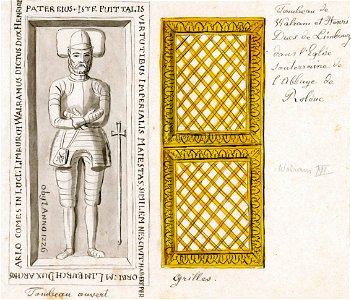 PATER EIUS · ISTE FUIT TALIS
VIRTUTIBUS IMPERIALIS MAJESTAS SIMILEM NESCIVIT HABERE PER
ORBE: M LIMBURCH DUX ARCHIO
ARLO COMES IN LUCE LIMBURCH WALRAMUS DICTUS DUX HENRIC
obijt Anno 1226
Tombeau ouvert
Grilles.
Tombeau de
Walram et Henri
Ducs de Limbourg
dans l'Eglise
souterraine de
l'Abbaye de
Rolduc
Walram III